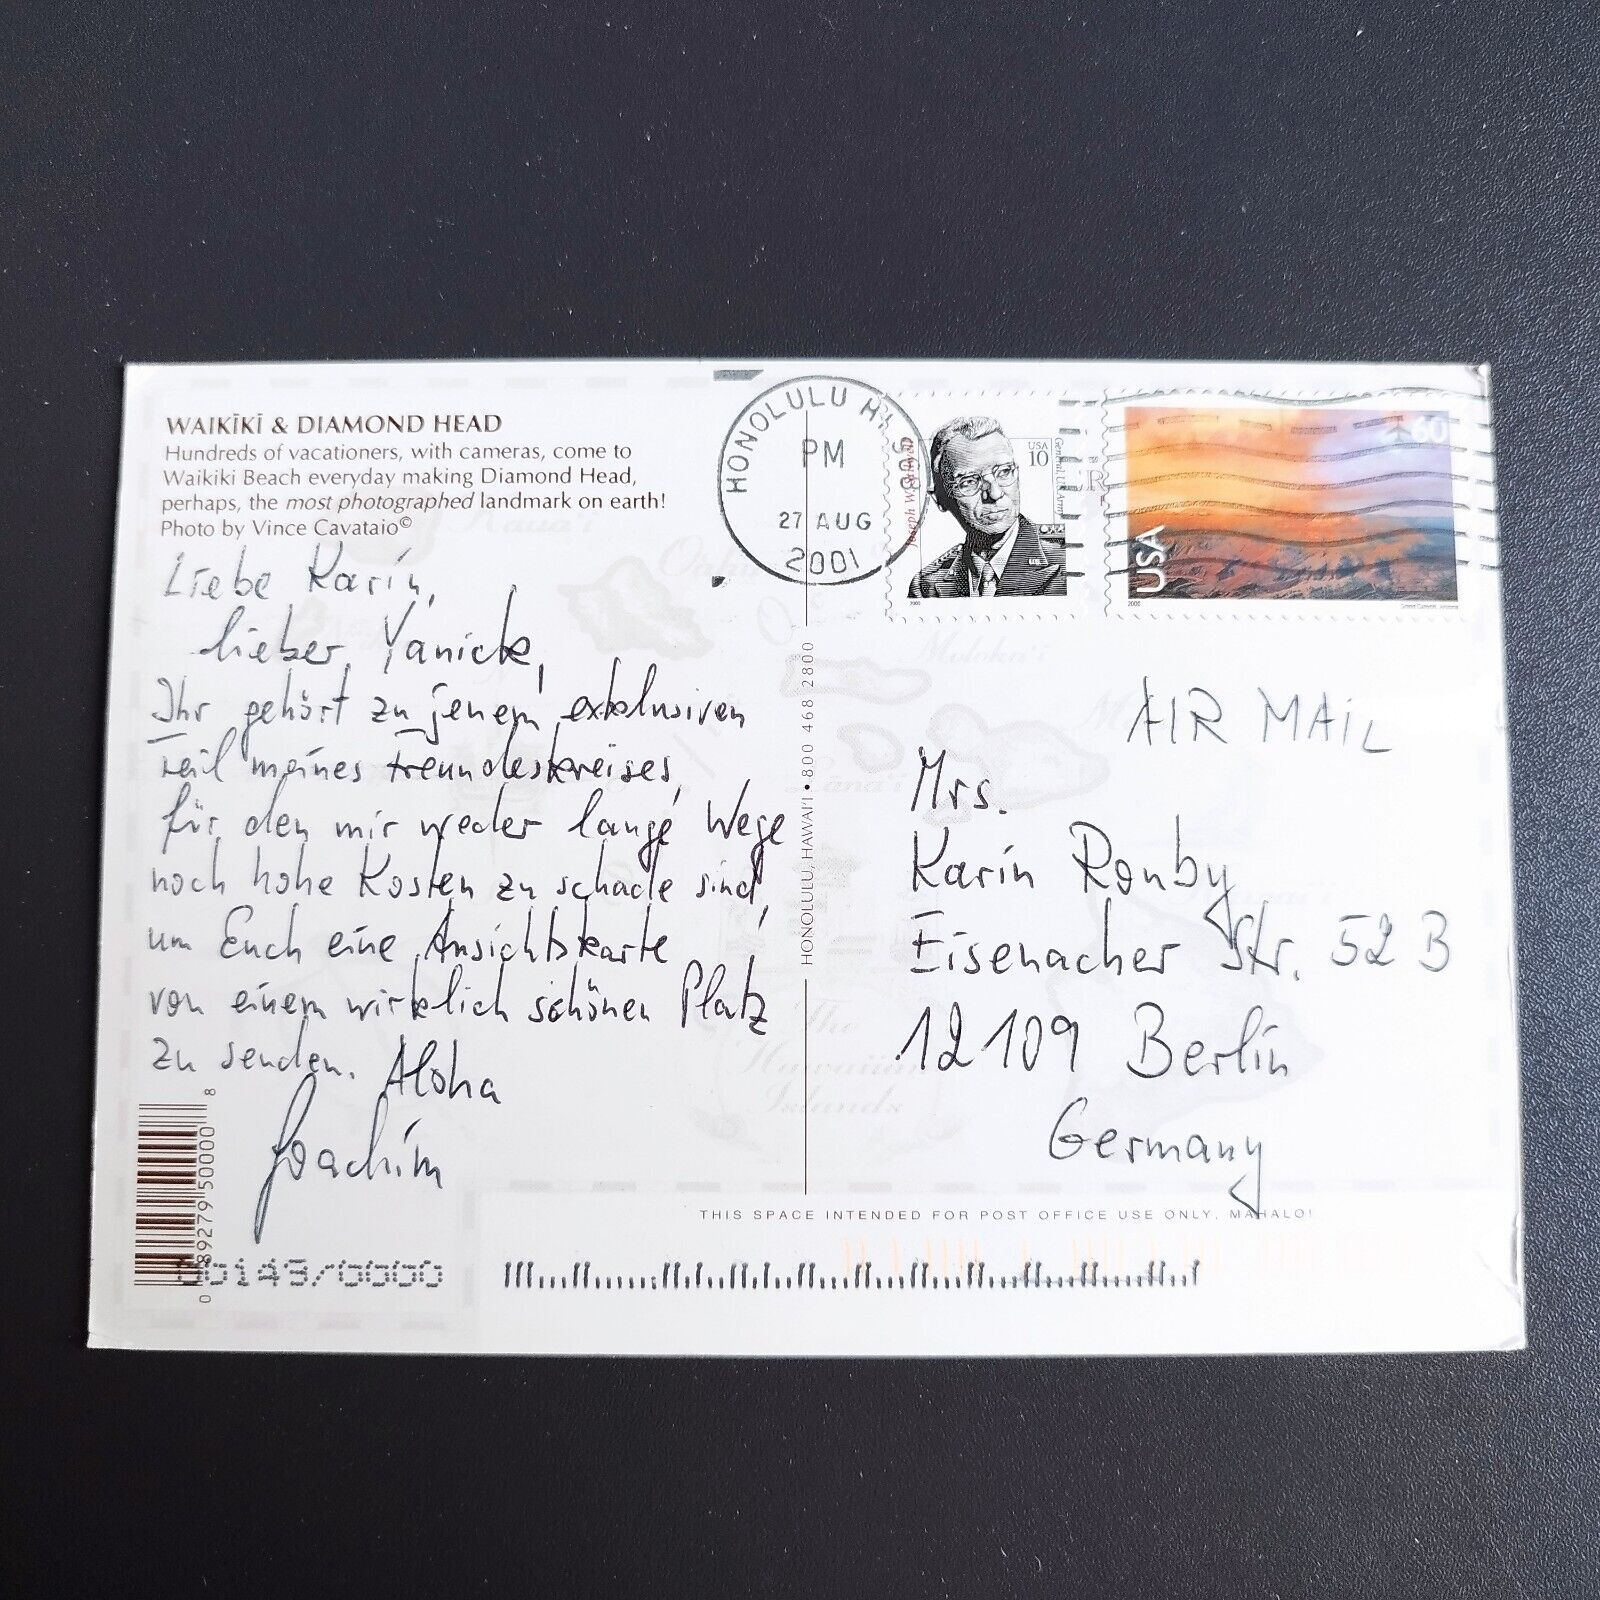 WAIKĪKĪ & DIAMOND HEAD
Hundreds of vacationers, with cameras, come to
Waikiki Beach everyday making Diamond Head,
perhaps, the most photographed landmark on earth!
Photo by Vince Cavataio©
Liebe Karin,
lieber Yanick,
Ihr gehört zu jenem exklusiven
Teil meines Freundeskreises,
für den mir weder lange Wege
noch hohe Kosten zu schade sind,
um Euch eine Ansichtskarte
von einem wirklich schönen Platz
zu senden. Aloha
Joachim
0 89279 50000 8
00143/0000
HONOLULU, HAWAI'I • 800 468 2800
HONOLULU HI
PM
27 AUG
2001
USA
10
General, U.S. Army
60
USA
2000
2000
Grand Canyon, Arizona
AIR MAIL
Mrs.
Karin Ronby
Eisenacher Str. 52 B
12109 Berlin
Germany
THIS SPACE INTENDED FOR POST OFFICE USE ONLY. MAHALO!
Kaua'i
O'ahu
Moloka'i
Lana'i
The
Hawaiian
Islands